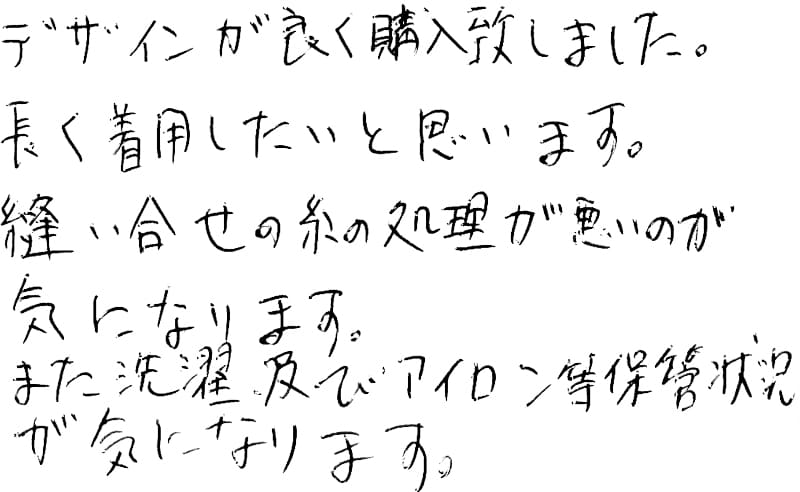 デザインが良く購入致しました。
長く着用したいと思います。
縫い合せの糸の処理が悪いのが
気になります。
また洗濯及びアイロン等保管状況
が気になります。